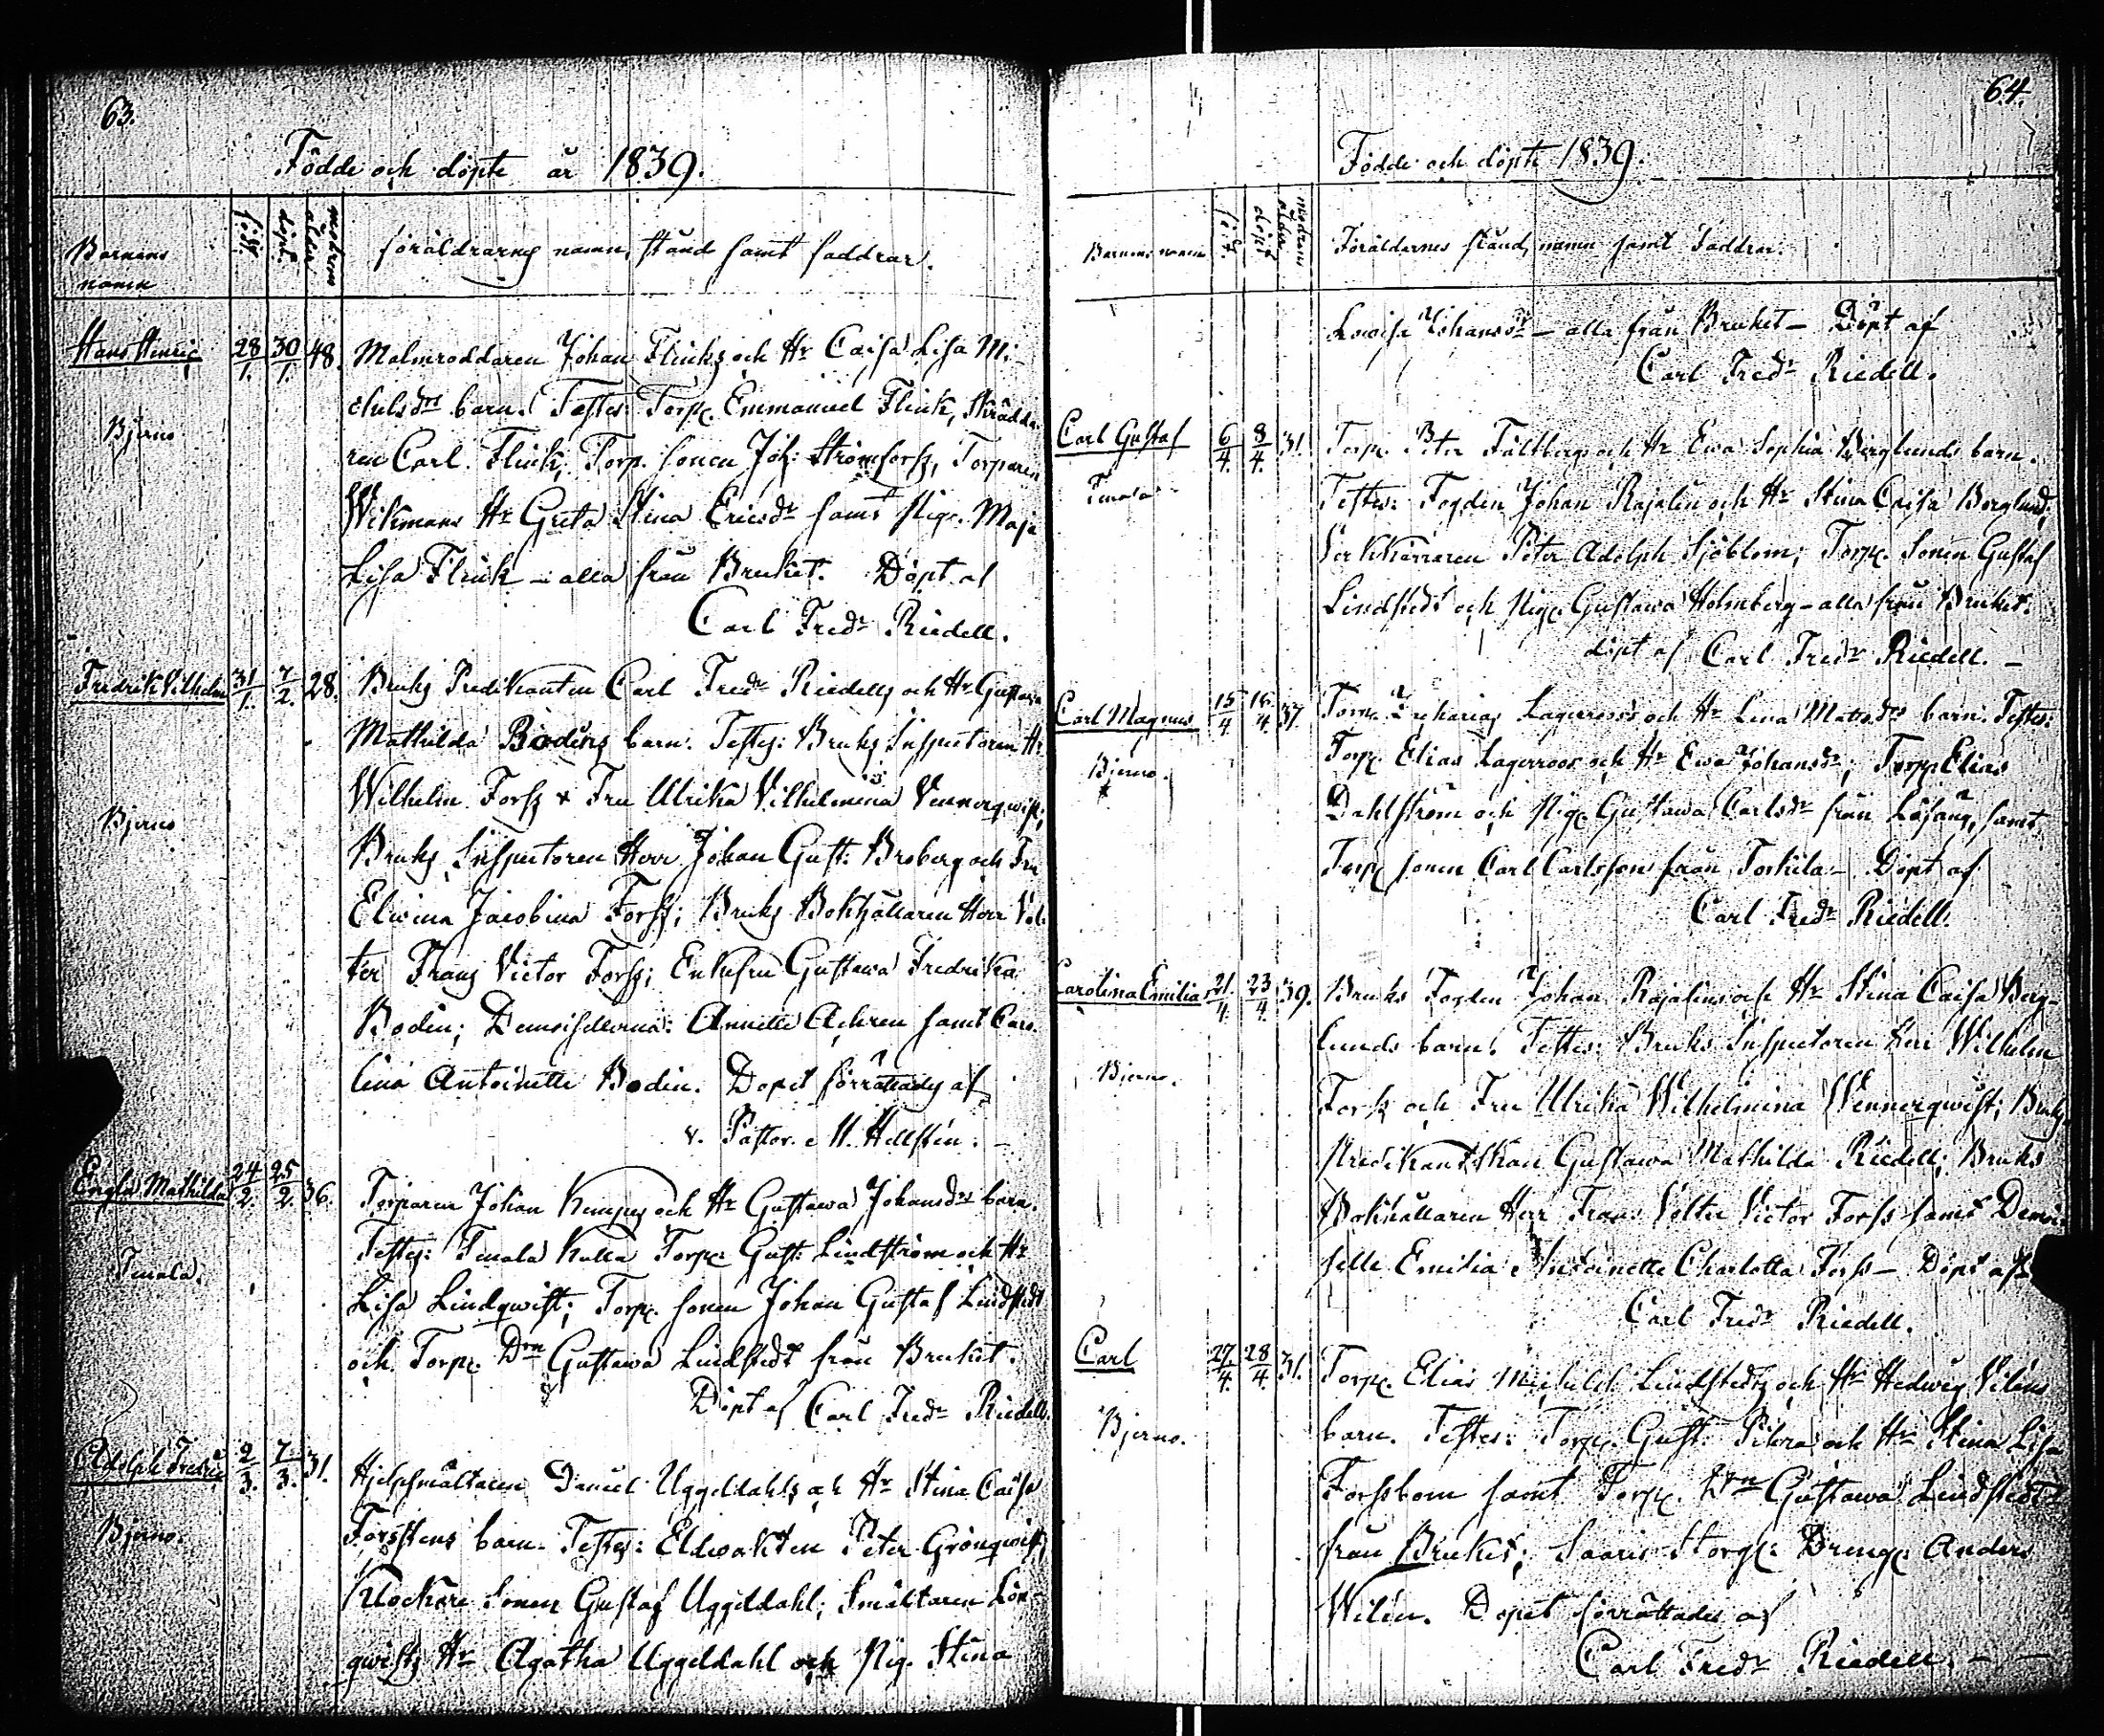 63.
Födde och döpte år 1839.
Barnens namn
född.
döpt.
modrens ålder
föräldrarnes namn, stånd samt faddrar.
Hans Henric 28/1. 30/1. 48. Malmroddaren Johan Flinks och Hr Caisa Lisa Mi-
chelsdrs barn. Testes: Torp. Emmanuel Flink, Skrädda-
Bjerno
ren Carl Flink, Torp. sonen Joh: Strömforss, Torparen
Wikmans Hr Greta Stina Ericsdr samt Pig. Maja
Lisa Flink – alla från Bruket. Döpt af
Carl Fredr Riedell.
Fredrik Vilhelm 31/1. 7/2. 28. Bruks Predikanten Carl Fredr Riedells och Hr Gustava
Mathilda Bodins barn. Testes: Bruks Inspectoren Hr
Wilhelm Forss & Fru Ulrika Vilhelmina Vennerqwist;
Bjerno
Bruks Inspectoren Herr Johan Gust: Broberg och Fru
Elwina Jacobina Forss; Bruks Bokhållaren Herr Vol-
ter Frans Victor Forss; Enkefru Gustawa Fredrika
Bodin; Demoisellerna: Annette Achren samt Caro-
lina Antoinette Bodin. Dopet förrättades af
v. Pastor M. Hellstén.
Engla Mathilda 24/2. 25/2. 36. Torparen Johan Kempes och Hr Gustawa Johansdrs barn.
Testes: Tenala Kulla Torp. Gust: Lindström och Hr
Tenala.
Lisa Lindqwist; Torp. sonen Johan Gustaf Lindstedt
och Torp. Drn Gustawa Lindstedt från Bruket.
Döpt af Carl Fredr Riedell.
Adolph Fredric 2/3. 7/3. 31. Hjelpsmältaren Daniel Uggeldahls och Hr Stina Caisa
Forsstens barn. Testes: Eldwakten Peter Grönqwist,
Bjerno.
Klockare Sonen Gustaf Uggeldahl; Smältaren Lön-
qwists Hr Agatha Uggeldahl och Pig. Stina
64.
Födde och döpte 1839.
Barnens namn
född.
döpt
modrens ålder
Föräldarnes stånd, namn samt faddrar.
Lowisa Johansdr – alla från Bruket – Döpt af
Carl Fredr Riedell.
Carl Gustaf 6/4. 8/4. 31. Torp. Peter Fältbergs och Hr Ewa Sophia Berglunds barn.
Tenala
Testes: Fogden Johan Rajalin och Hr Stina Caisa Berglund;
Peter Adolph Sjöblom; Torp. Sonen Gustaf
Lindstedt och Pig. Gustawa Holmberg – alla från Bruket.
döpt af Carl Fredr Riedell. –
Carl Magnus 15/4. 16/4. 37. Torp. Zacharias Lagerroos's och Hr Lena Matsdrs barn. Testes:
Torp. Elias Lagerroos och Hr Ewa Johansdr; Torp. Elias
Bjerno.
Dahlström och Pig. Gustawa Carlsdr från Låsäng, samt
Torp. sonen Carl Carlsson från Torkila – Döpt af
Carl Fredr Riedell.
Carolina Emilia 21/4. 23/4. 39. Bruks Fogden Johan Rajalins och Hr Stina Caisa Berg-
lunds barn. Testes: Bruks Inspectoren Herr Wilhelm
Bjerno.
Forss och Fru Ulrika Wilhelmina Wennerqwist; Bruks
Predikantskan Gustawa Mathilda Riedell; Bruks
Bokhållaren Herr Frans Volter Victor Forss samt Demoi-
selle Emilia Antoinette Charlotta Forss – Döpt af
Carl Fredr Riedell.
Carl 27/4. 28/4. 31. Torp. Elias Michelss. Lindstedts och Hr Hedwig Viléns
Bjerno.
barn. Testes: Torp. Gust: Pihra och Hr Stina Lisa
Forssbom samt Torp. Drn Gustawa Lindstedt
från Bruket; Saaris Storp. Dreng. Anders
Wilén. Dopet förrättades af
Carl Fredr Riedell. – –